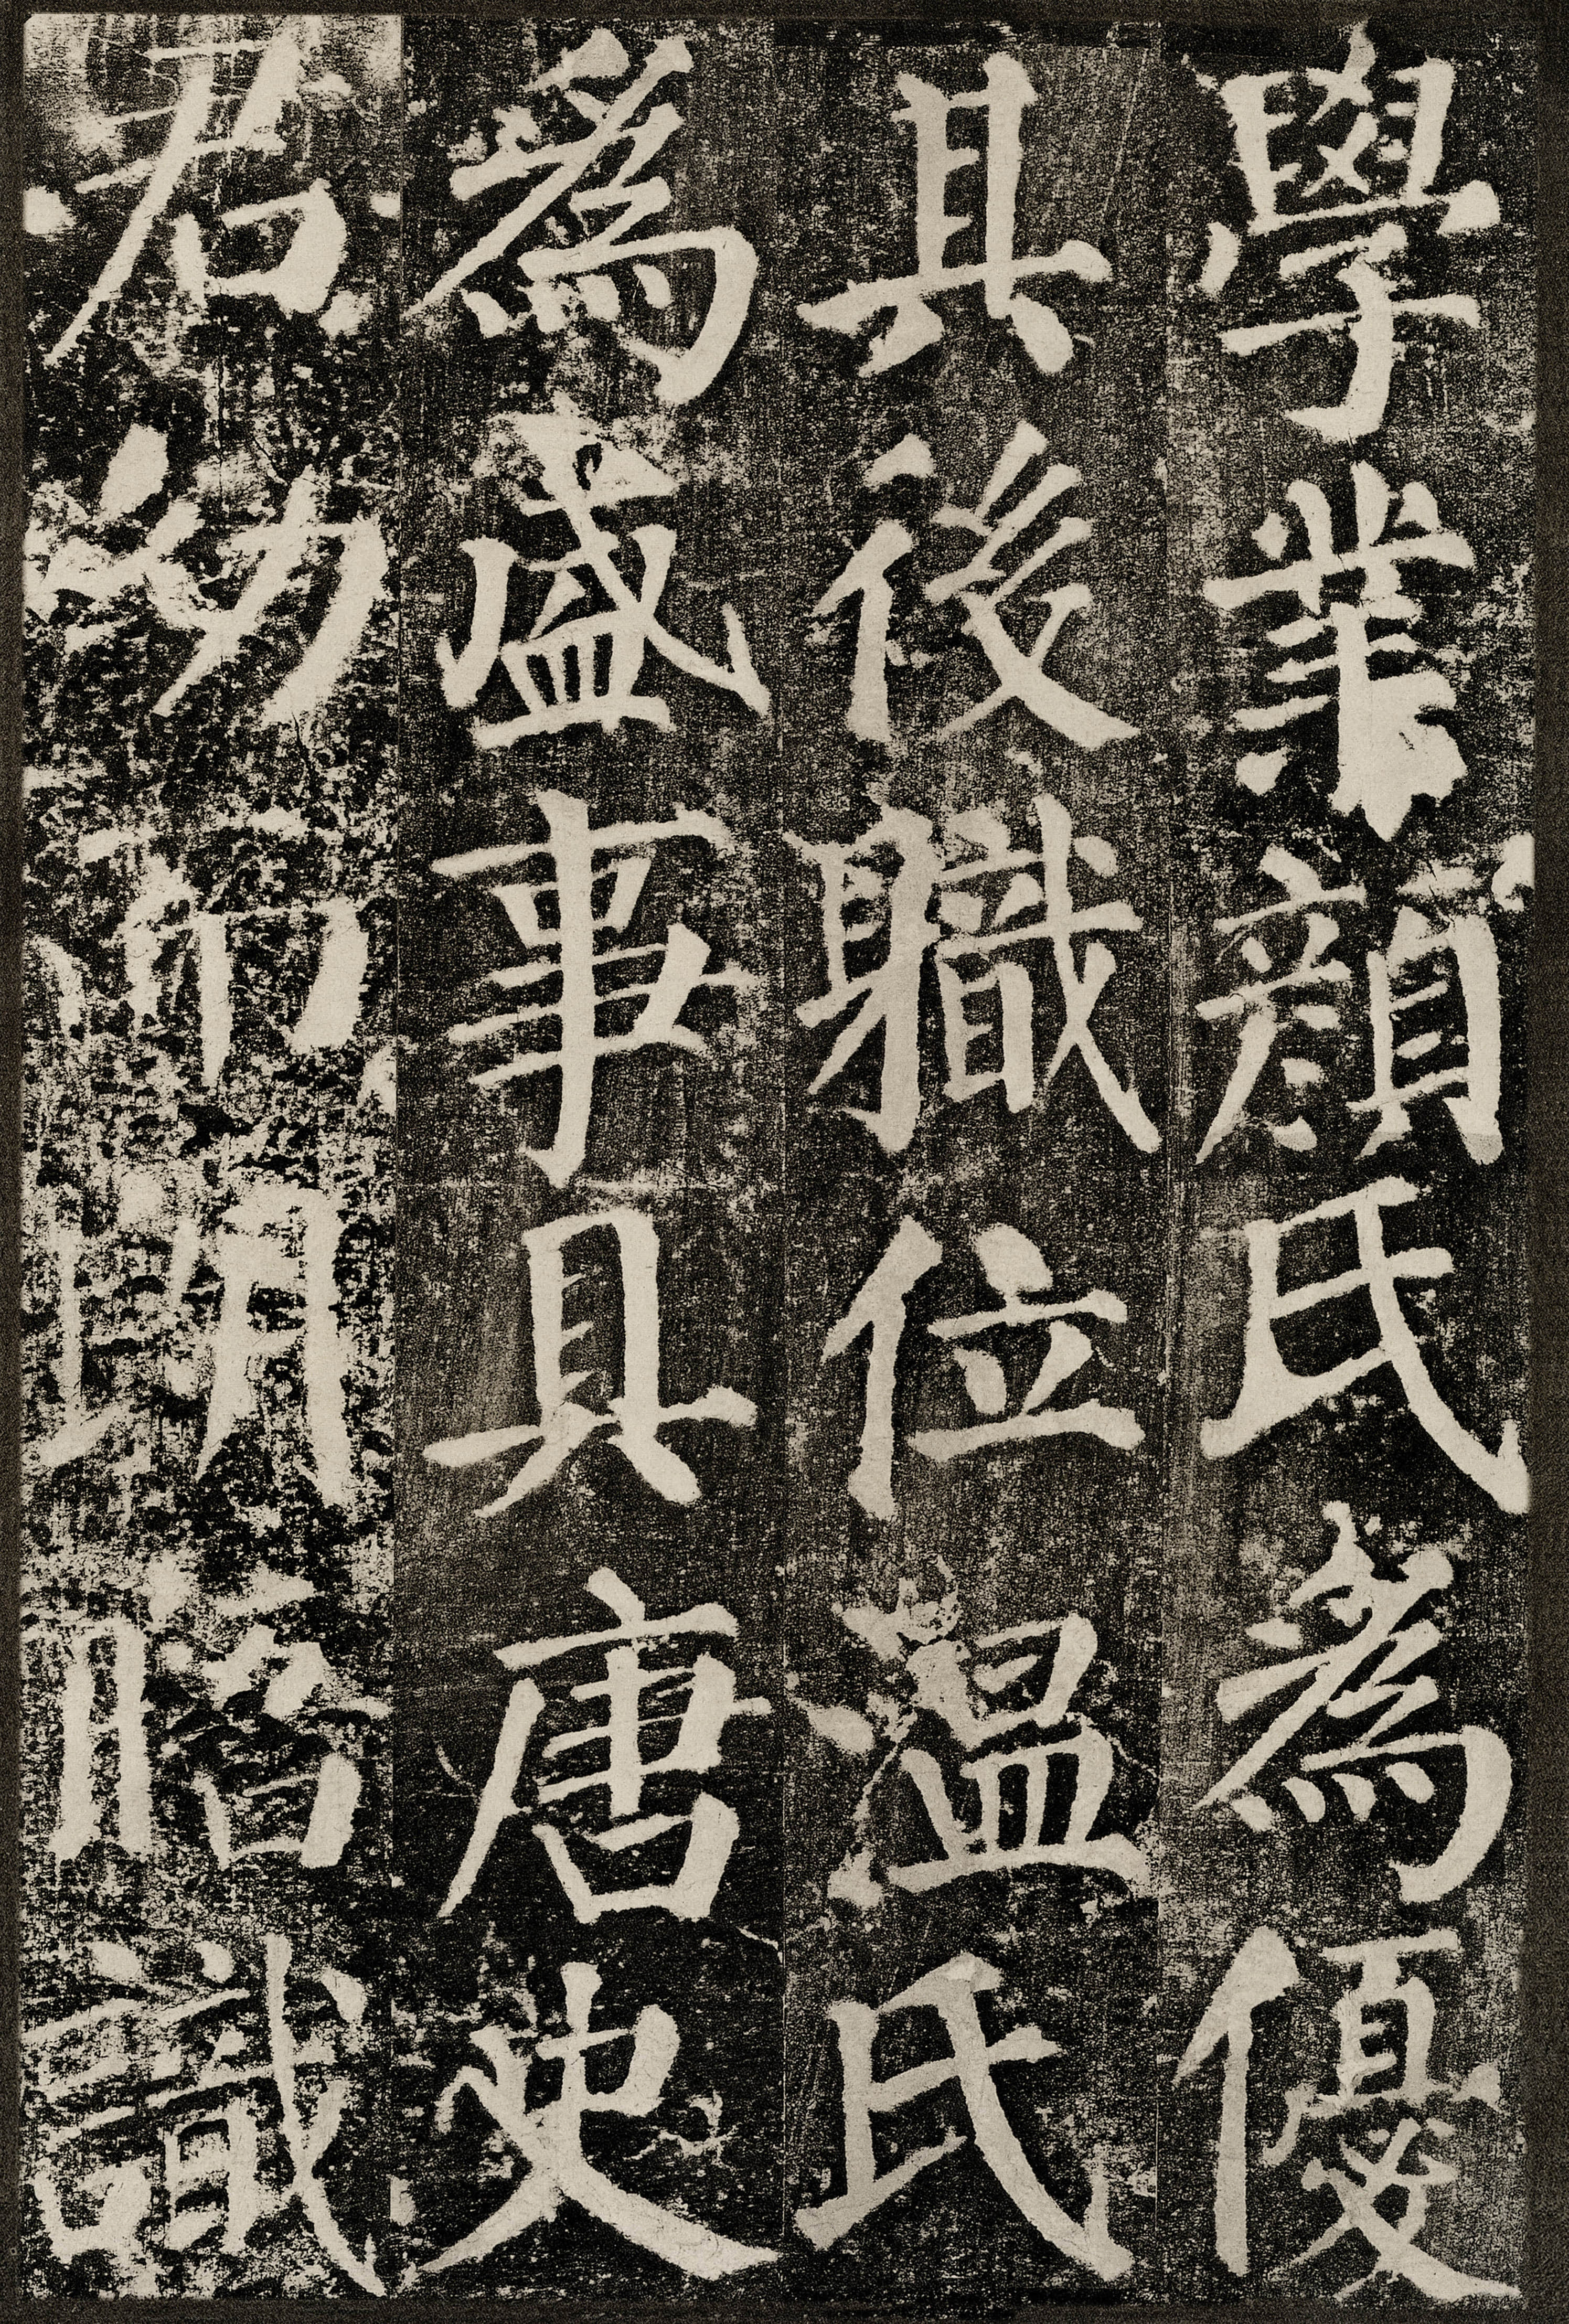 學業顏氏為優
其後職位溫氏
為盛事具唐史
君幼而朗晤識